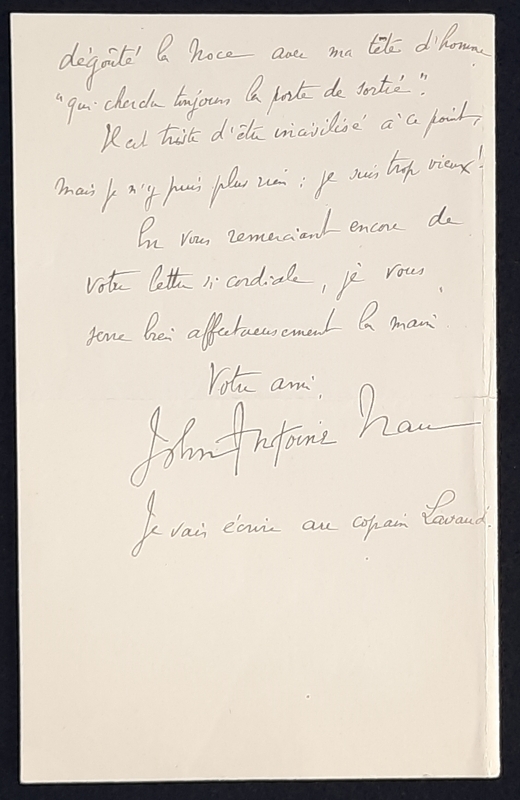 dégoûté la noce avec ma tête d'homme
"qui cherche toujours la porte de sortie".
Il est triste d'être incivilisé à ce point,
mais je n'y puis plus rien : je suis trop vieux !
En vous remerciant encore de
votre lettre si cordiale, je vous
serre bien affectueusement la main.
Votre ami,
John-Antoine Nau
Je vais écrire au copain Lavaud.